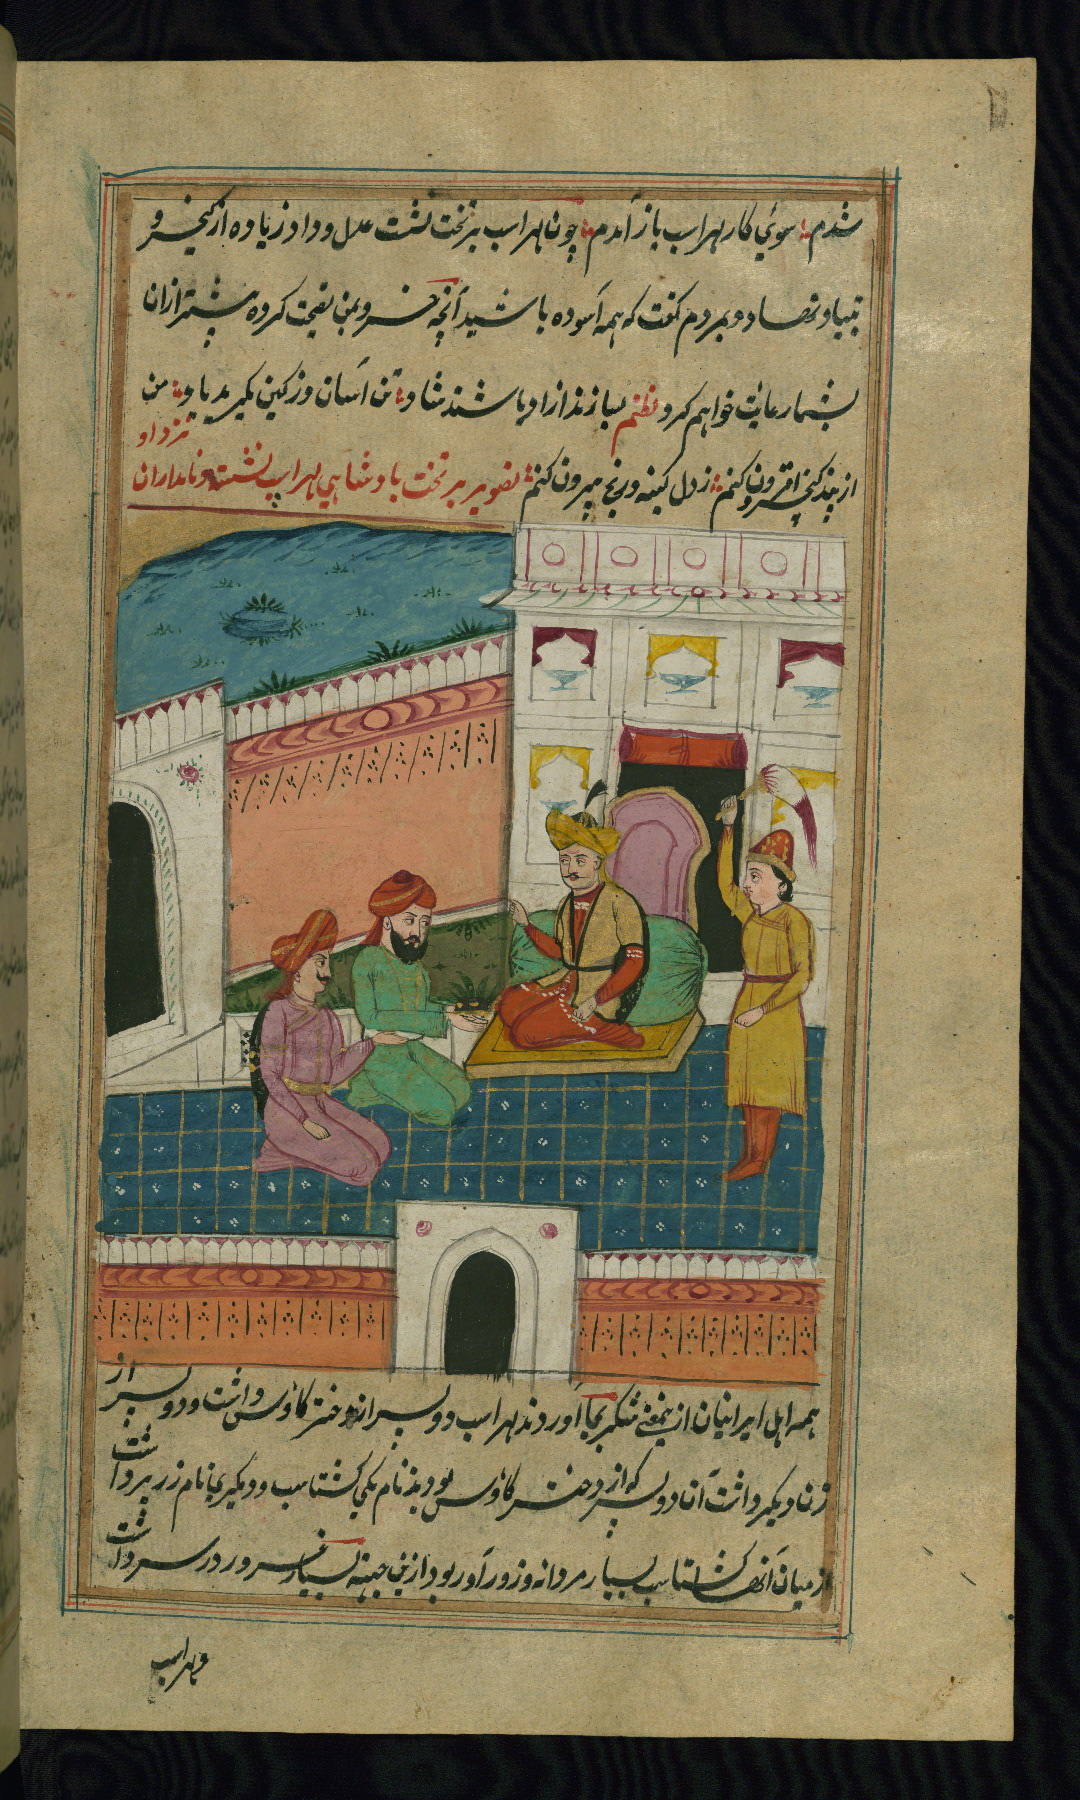 شدم سوئی کار لهراسب باز آمدم چون لهراسب بر تخت نشست عدل و داد زیاده از کیخسرو
بنیاد نهاد و بمردم گفت که همه آسوده باشید آنچه خسرو بمن نصیحت کرده بیشتر ازان
بشما رعایت خواهم کرد نظم بسازند از داد باشند شاد تن آسان و زکین مگیرید یاد من
از پند کیخسرو افزون کنم ز دل کینه و رنج بیرون کنم تصویر بر تخت بادشاهی لهراسپ نشسته و نامداران
نزد او
همه اهل ایرانیان ازینمعنی شکر بجا آوردند لهراسب دو پسر از دختر کاؤس داشت و دو پسر از
زنان دیگر داشت آن دو پسر که از دختر کاؤس بودند نام یکی گشتاسب و دیگر را نام زریر داشت
از میان آنها گشتاسب بسیار مردانه و زورآور بود ازین جهته بسیار غرور در سر داشت
و لهراسب